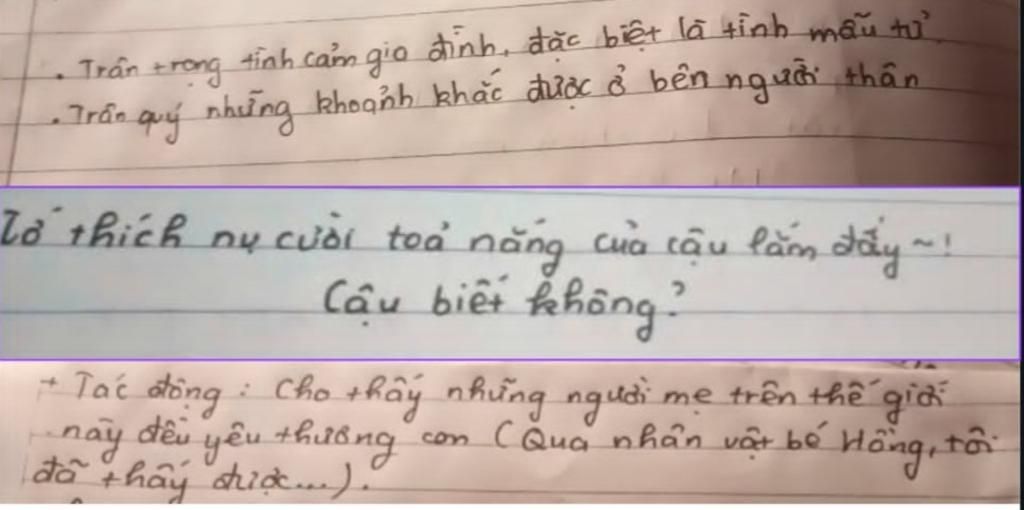 . Trân trọng tình cảm gia đình, đặc biệt là tình mẫu tử
. Trân quý những khoảnh khắc được ở bên người thân
Tớ thích nụ cười toả nắng của cậu lắm đấy ~!
Cậu biết không?
+ Tác động: Cho thấy những người mẹ trên thế giới
này đều yêu thương con (Qua nhân vật bé Hồng, tôi
đã thấy được...).